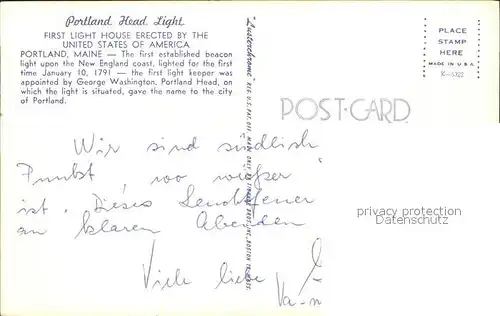 Portland Head Light
FIRST LIGHT HOUSE ERECTED BY THE
UNITED STATES OF AMERICA
PORTLAND, MAINE — The first established beacon
light upon the New England coast, lighted for the first
time January 10, 1791 — the first light keeper was
appointed by George Washington. Portland Head, on
which the light is situated, gave the name to the city
of Portland.
PLACE
STAMP
HERE
MADE IN U.S.A.
K-6322
POST-CARD
Wir sind südlich
Punkt wo
ist. Dieses Leuchtfeuer
an klaren Abenden
Viele liebe
privacy protection
www.ansichtskarten-center.de
"Lusterchrome" REG. U.S. PAT. OFF. MADE ONLY BY TICHNOR BROS., INC., BOSTON 15, MASS.